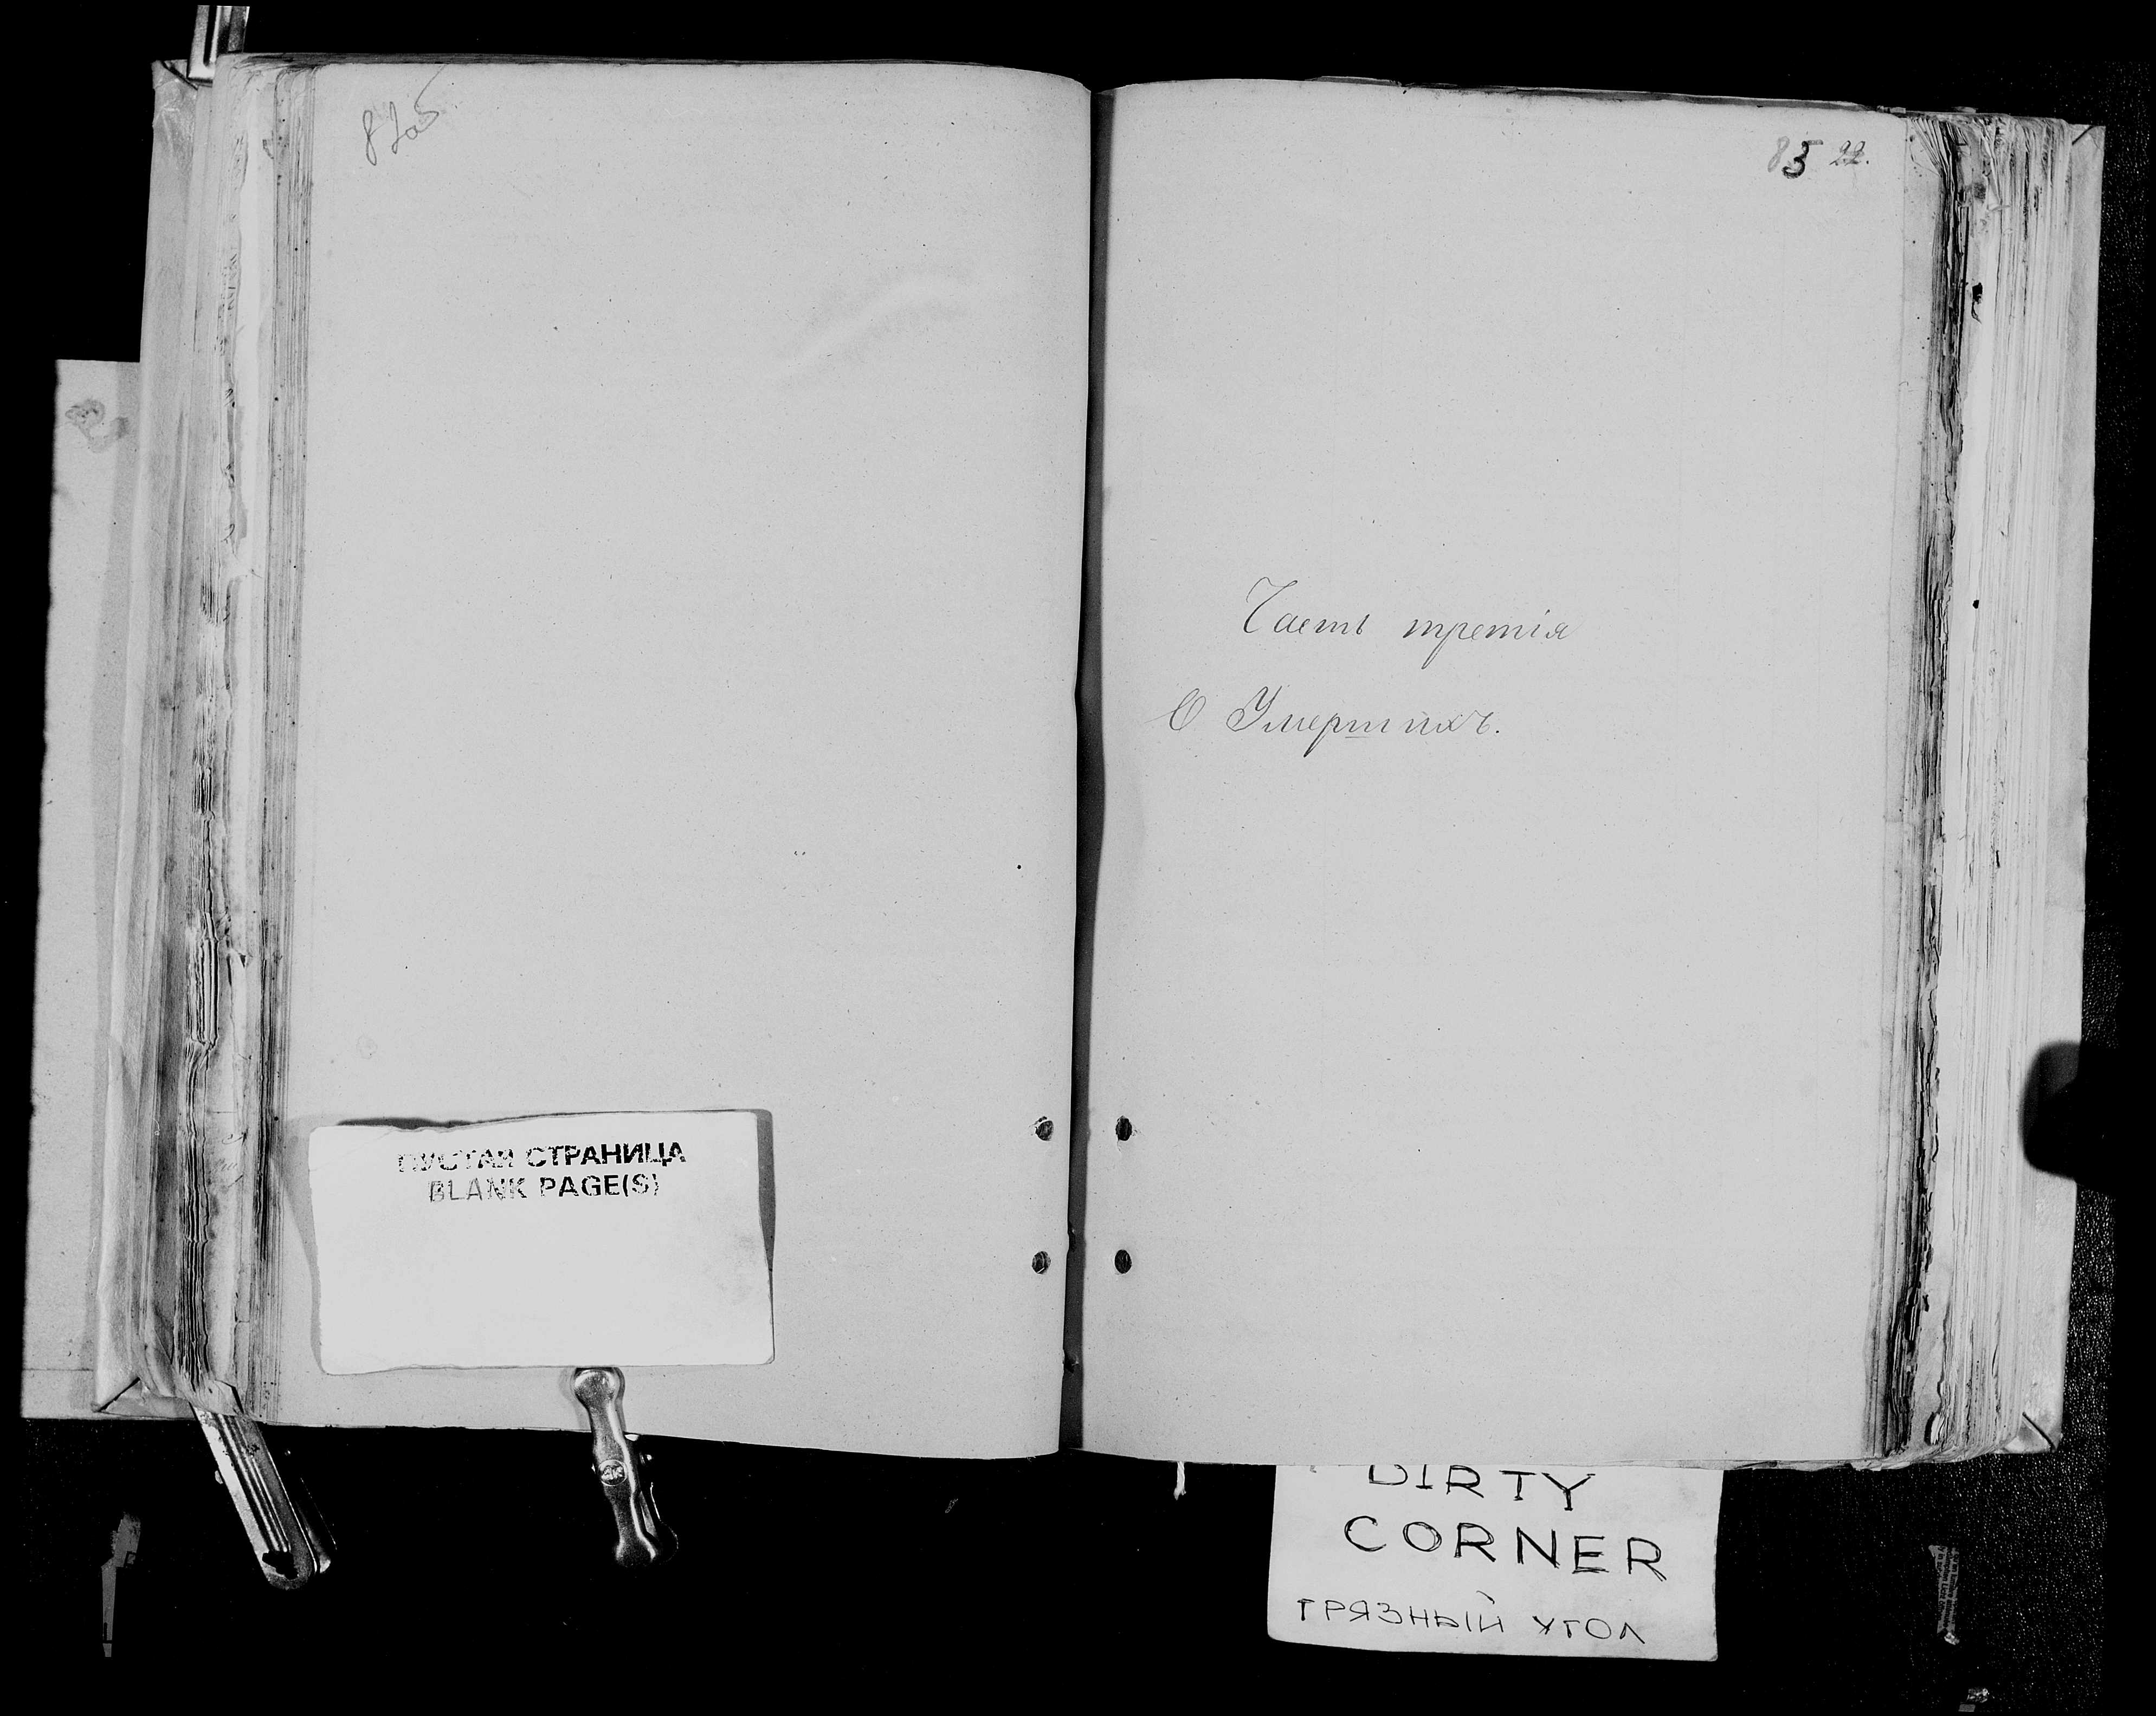 82об
83 22.
Часть третія
О Умершихъ.
ПУСТАЯ СТРАНИЦА
BLANK PAGE(S)
DIRTY
CORNER
ГРЯЗНЫЙ УГОЛ